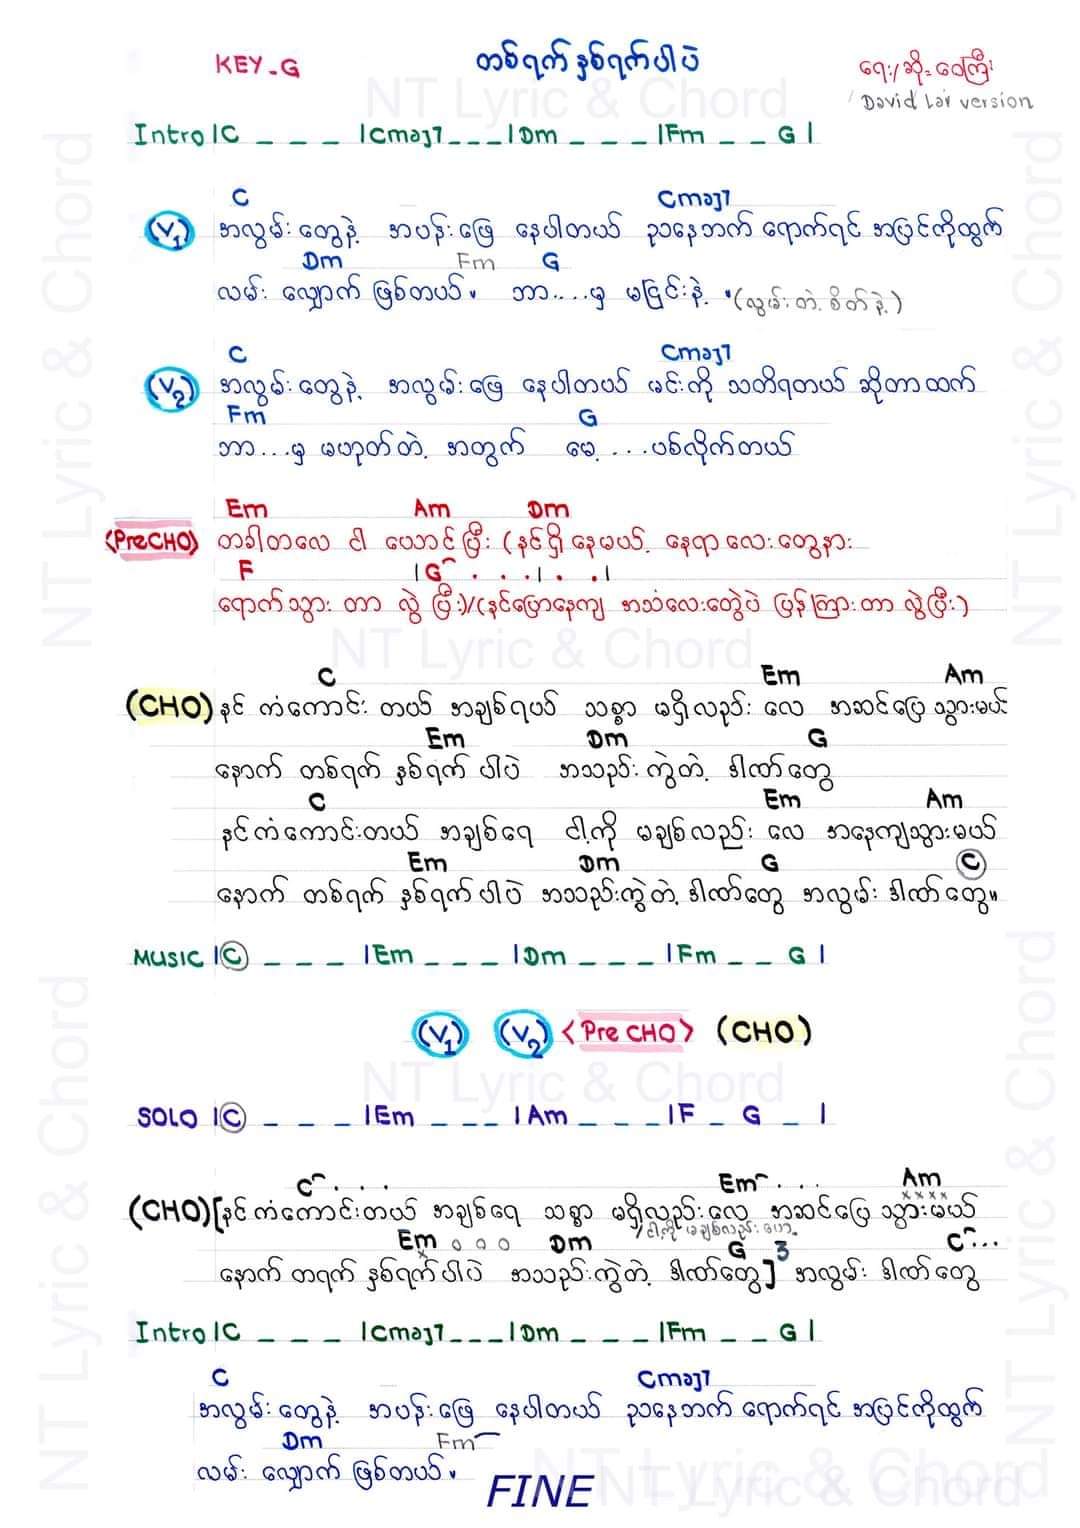 KEY-G တစ်ရက်နှစ်ရက်ပါပဲ ရေး/ဆို-ဝေကြီး
David Lai version
Intro |C _ _ _ |Cmaj7 _ _ _ |Dm _ _ _ |Fm _ _ G |
C Cmaj7
(V1) အလွမ်းတွေနဲ့ အပန်းဖြေ နေပါတယ် ညနေဘက် ရောက်ရင် အပြင်ကိုထွက်
Dm Fm G
လမ်း လျှောက် ဖြစ်တယ်။ ဘာ....မှ မငြင်းနဲ့ (လွမ်းတဲ့ စိတ်နဲ့)
C Cmaj7
(V2) အလွမ်းတွေနဲ့ အလွမ်းဖြေ နေပါတယ် မင်းကို သတိရတယ် ဆိုတာထက်
Fm G
ဘာ...မှ မဟုတ်တဲ့ အတွက် မေ့....ပစ်လိုက်တယ်
Em Am Dm
<PreCHO> တခါတလေ ငါ ယောင်ပြီး (နင်ရှိနေမယ့် နေရာလေးတွေနား
F |G . . . | . . |
ရောက်သွား တာ လွဲ ပြီ)/(နင်ပြောနေကျ အသံလေးတွေပဲ ပြန်ကြားတာ လွဲပြီ)
C Em Am
(CHO) နင် ကံကောင်း တယ် အချစ်ရယ် သစ္စာ မရှိလည်း လေ အဆင်ပြေ သွားမယ်
Em Dm G
နောက် တစ်ရက် နှစ်ရက် ပါပဲ အသည်းကွဲတဲ့ ဒါဏ်တွေ
C Em Am
နင်ကံကောင်းတယ် အချစ်ရေ ငါ့ကို မချစ်လည်း လေ အနေကျသွားမယ်
Em Dm G C
နောက် တစ်ရက် နှစ်ရက်ပါပဲ အသည်းကွဲတဲ့ ဒါဏ်တွေ အလွမ်း ဒါဏ်တွေ။
MUSIC |C _ _ _ |Em _ _ _ |Dm _ _ _ |Fm _ _ G |
(V1) (V2) <Pre CHO> (CHO)
SOLO |C _ _ _ |Em _ _ _ |Am _ _ _ |F _ G _ |
C . . . Em . . . Am
x x x x
(CHO) [နင်ကံကောင်းတယ် အချစ်ရေ သစ္စာ မရှိလည်းလေ အဆင်ပြေ သွားမယ်
Em Dm G 3 C...
နောက် တရက် နှစ်ရက်ပါပဲ အသည်းကွဲတဲ့ ဒါဏ်တွေ] အလွမ်း ဒါဏ်တွေ
Intro |C _ _ _ |Cmaj7 _ _ _ |Dm _ _ _ |Fm _ _ G |
C Cmaj7
အလွမ်းတွေနဲ့ အပန်းဖြေ နေပါတယ် ညနေဘက် ရောက်ရင် အပြင်ကိုထွက်
Dm Fm
လမ်း လျှောက် ဖြစ်တယ်။
FINE
NT Lyric & Chord